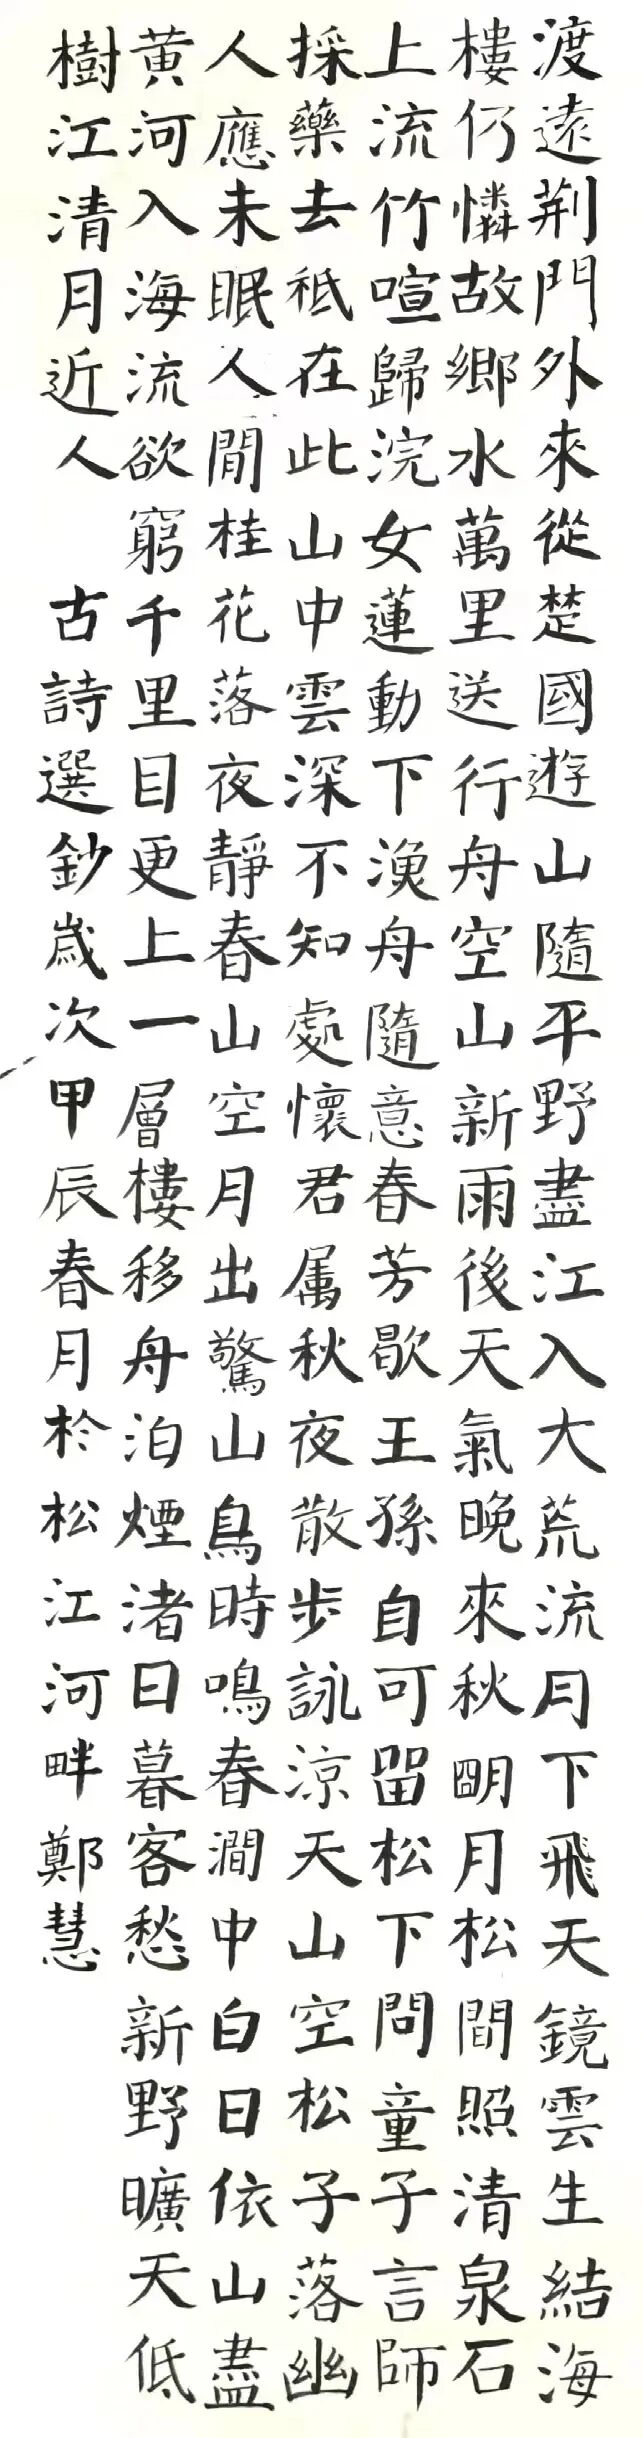 渡遠荊門外來從楚國遊山隨平野盡江入大荒流月下飛天鏡雲生結海
樓仍憐故鄉水萬里送行舟空山新雨後天氣晚來秋朙月松間照清泉石
上流竹喧歸浣女蓮動下漁舟隨意春芳歇王孫自可留松下問童子言師
採藥去祗在此山中雲深不知處懷君属秋夜散步詠涼天山空松子落幽
人應未眠人閒桂花落夜靜春山空月出驚山鳥時鳴春澗中白日依山盡
黄河入海流欲窮千里目更上一層樓移舟泊煙渚日暮客愁新野曠天低
樹江清月近人 古詩選鈔歲次甲辰春月於松江河畔鄭慧